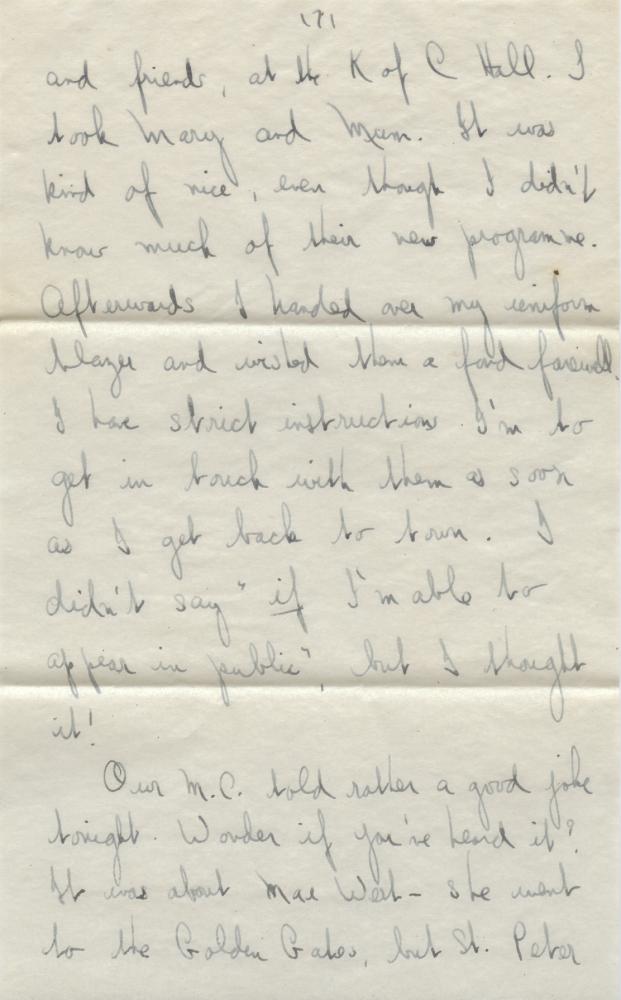 (7)
and friends, at the K of C Hall. I
took Mary and Mum. It was
kind of nice, even though I didn't
know much of their new programme.
Afterwards I handed over my uniform
blazer and wished them a fond farewell.
I have strict instructions I'm to
get in touch with them as soon
as I get back to town. I
didn't say "if I'm able to
appear in public", but I thought
it!
Our M.C. told rather a good joke
tonight. Wonder if you've heard it?
It was about Mae West - she went
to the Golden Gates, but St. Peter